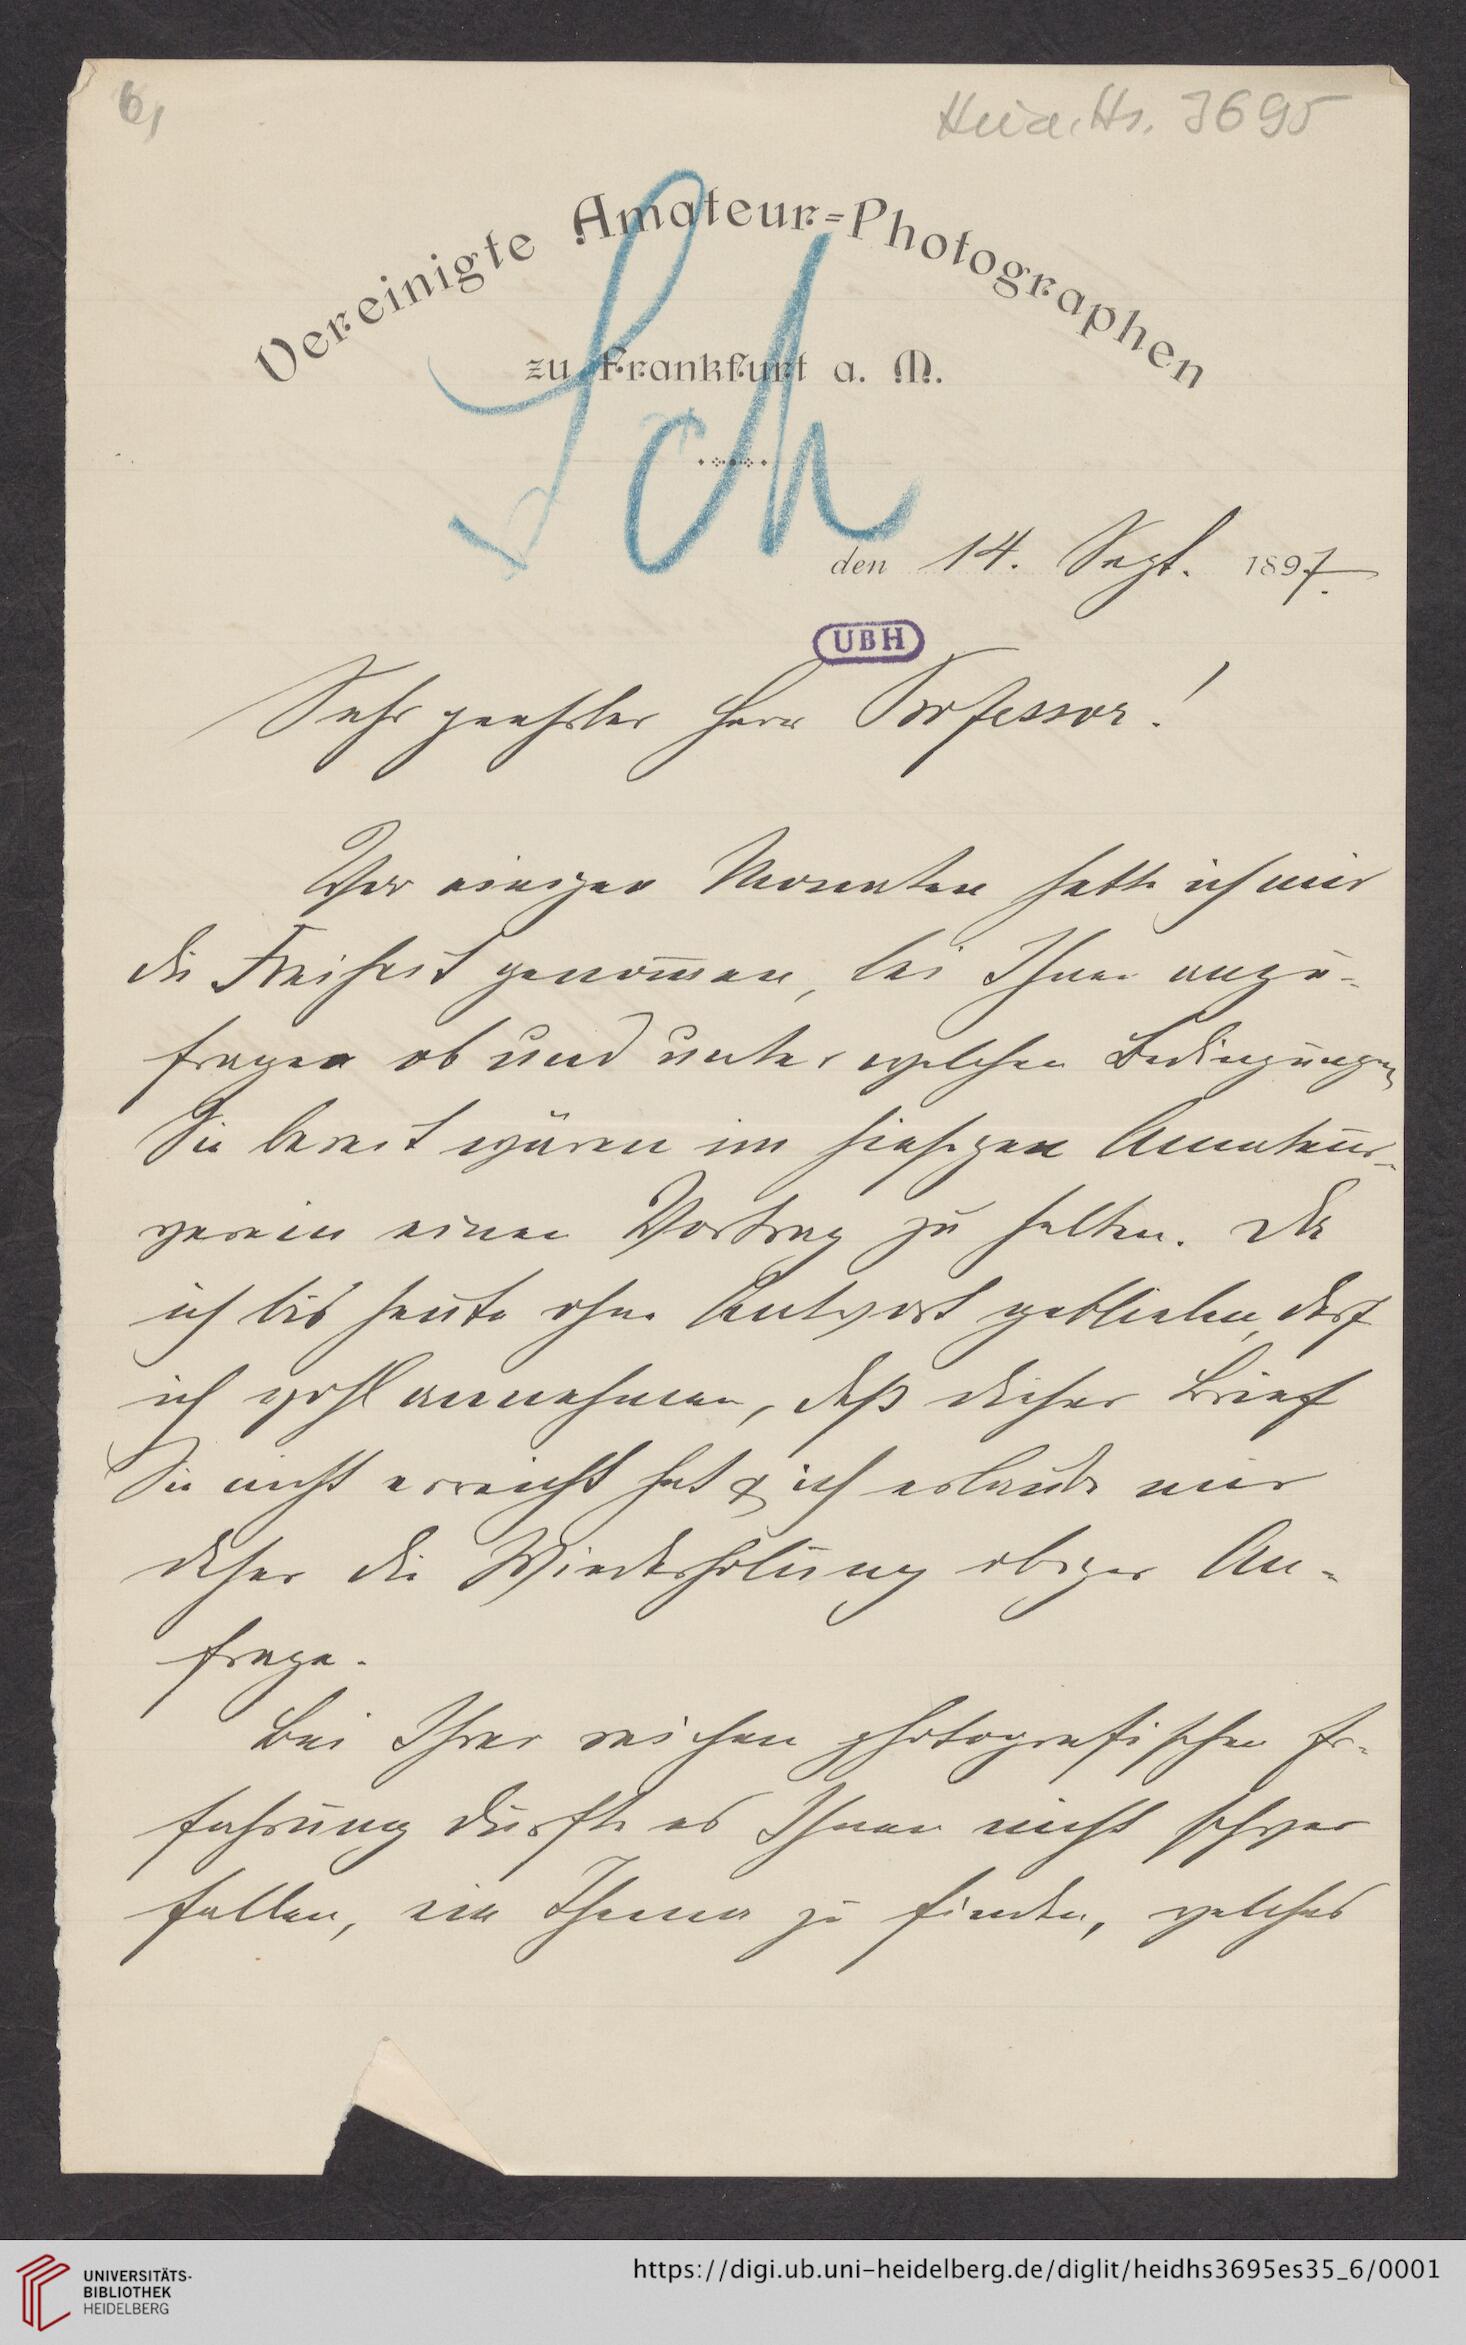 6,
Heid. Hs. 3695
Vereinigte Amateur=Photographen
zu Frankfurt a. M.
Sch
den 14. Sept. 1897.
UBH
Sehr geehrter Herr Professor!
Vor einigen Monaten hatte ich mir
die Freiheit genom̅en, bei Ihnen anzu-
fragen ob und unter welchen Bedingungen
Sie bereit wären im hiesigen Amateur-
verein einen Vortrag zu halten. Da
ich bis heute ohne Antwort geblieben, darf
ich wohl annehmen, daß dieser Brief
Sie nicht erreicht hat & ich erlaube mir
daher die Wiederholung obiger An-
frage.
Bei Ihrer reichen photografischen Er-
fahrung dürfte es Ihnen nicht schwer
fallen, ein Thema zu finden, welches
UNIVERSITÄTS-
BIBLIOTHEK
HEIDELBERG
https://digi.ub.uni-heidelberg.de/diglit/heidhs3695es35_6/0001